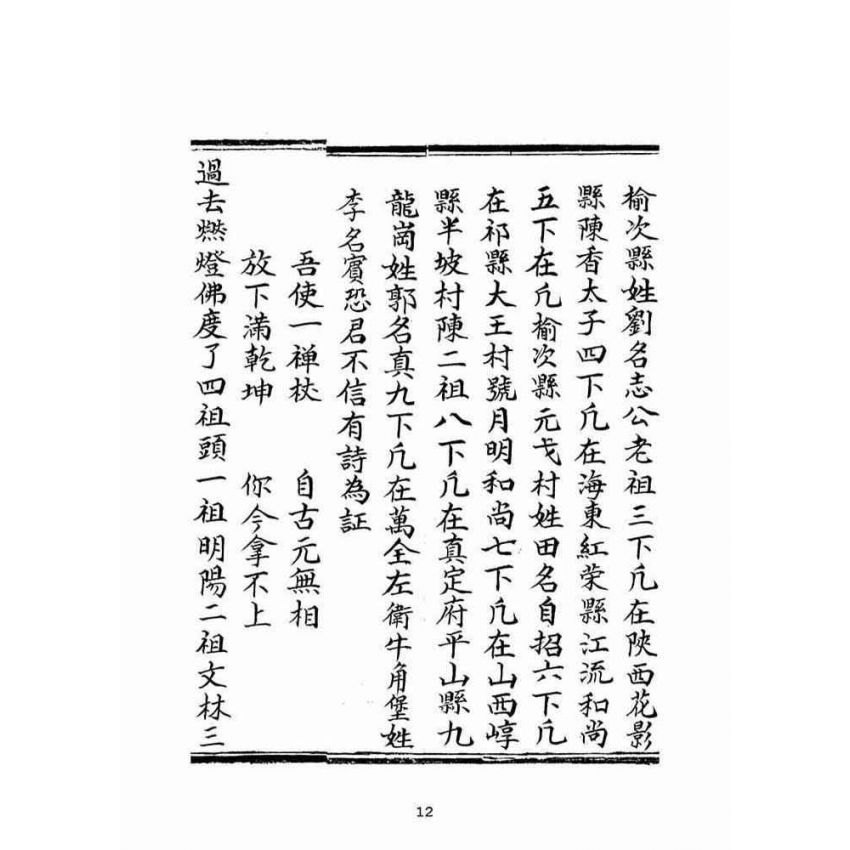 榆次縣姓劉名志公老祖三下凢在陝西花影
縣陳香太子四下凢在海東紅荣縣江流和尚
五下在凢榆次縣元戈村姓田名自招六下凢
在祁縣大王村號月明和尚七下凢在山西崞
縣半坡村陳二祖八下凢在真定府平山縣九
龍崗姓郭名真九下凢在萬全左衛牛角堡姓
李名賓恐君不信有詩為証
吾使一禅杖　自古元無相
放下滿乾坤　你今拿不上
過去燃燈佛度了四祖頭一祖明陽二祖文林三
12